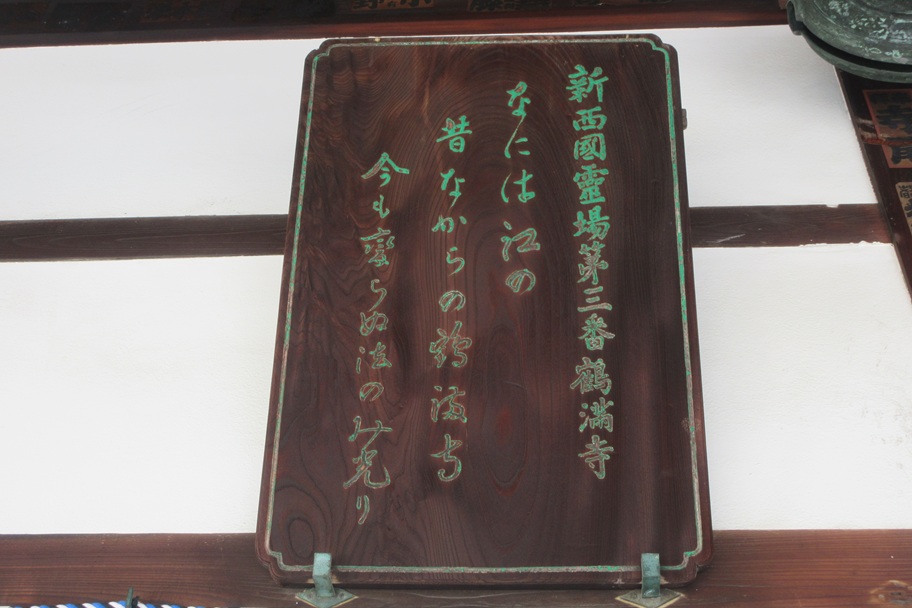 新西國靈場第三番鶴滿寺
なには江の
昔なからの鶴滿寺
今も變らぬ法のみ光り